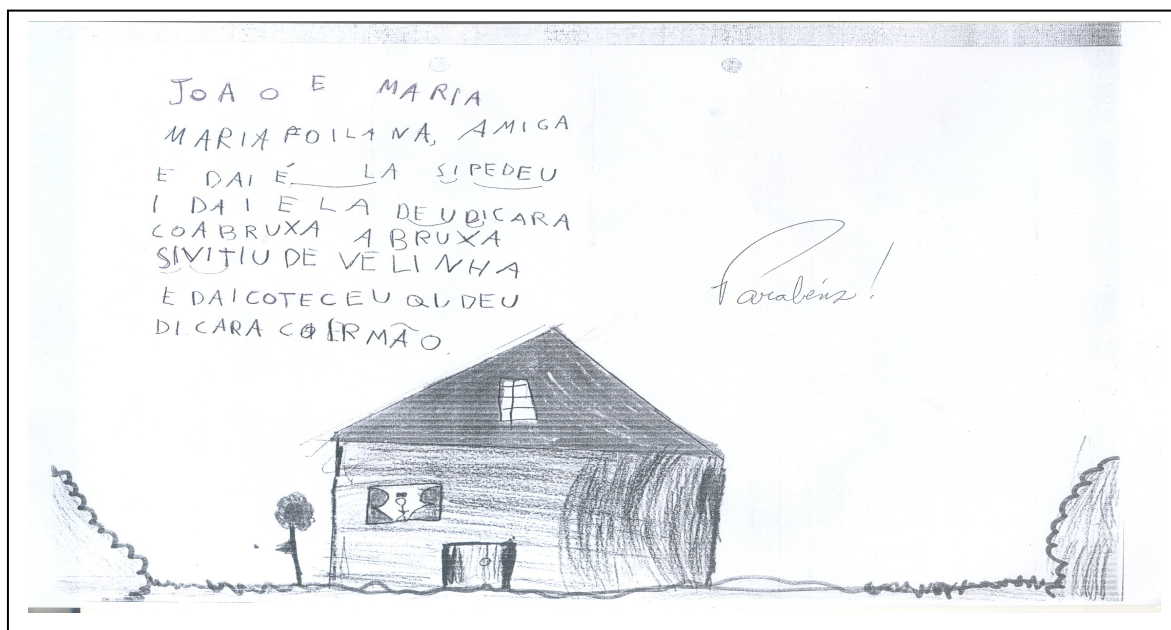 JOAO E MARIA
MARIA FOI LA NA, AMIGA
E DAI É LA SIPEDEU
I DAI ELA DEUDICARA
COABRUXA A BRUXA
SIVITIU DE VÉLINHA
E DAICOTECEU QUDEU
DI CARA CO IRMÃO.
Parabéns!